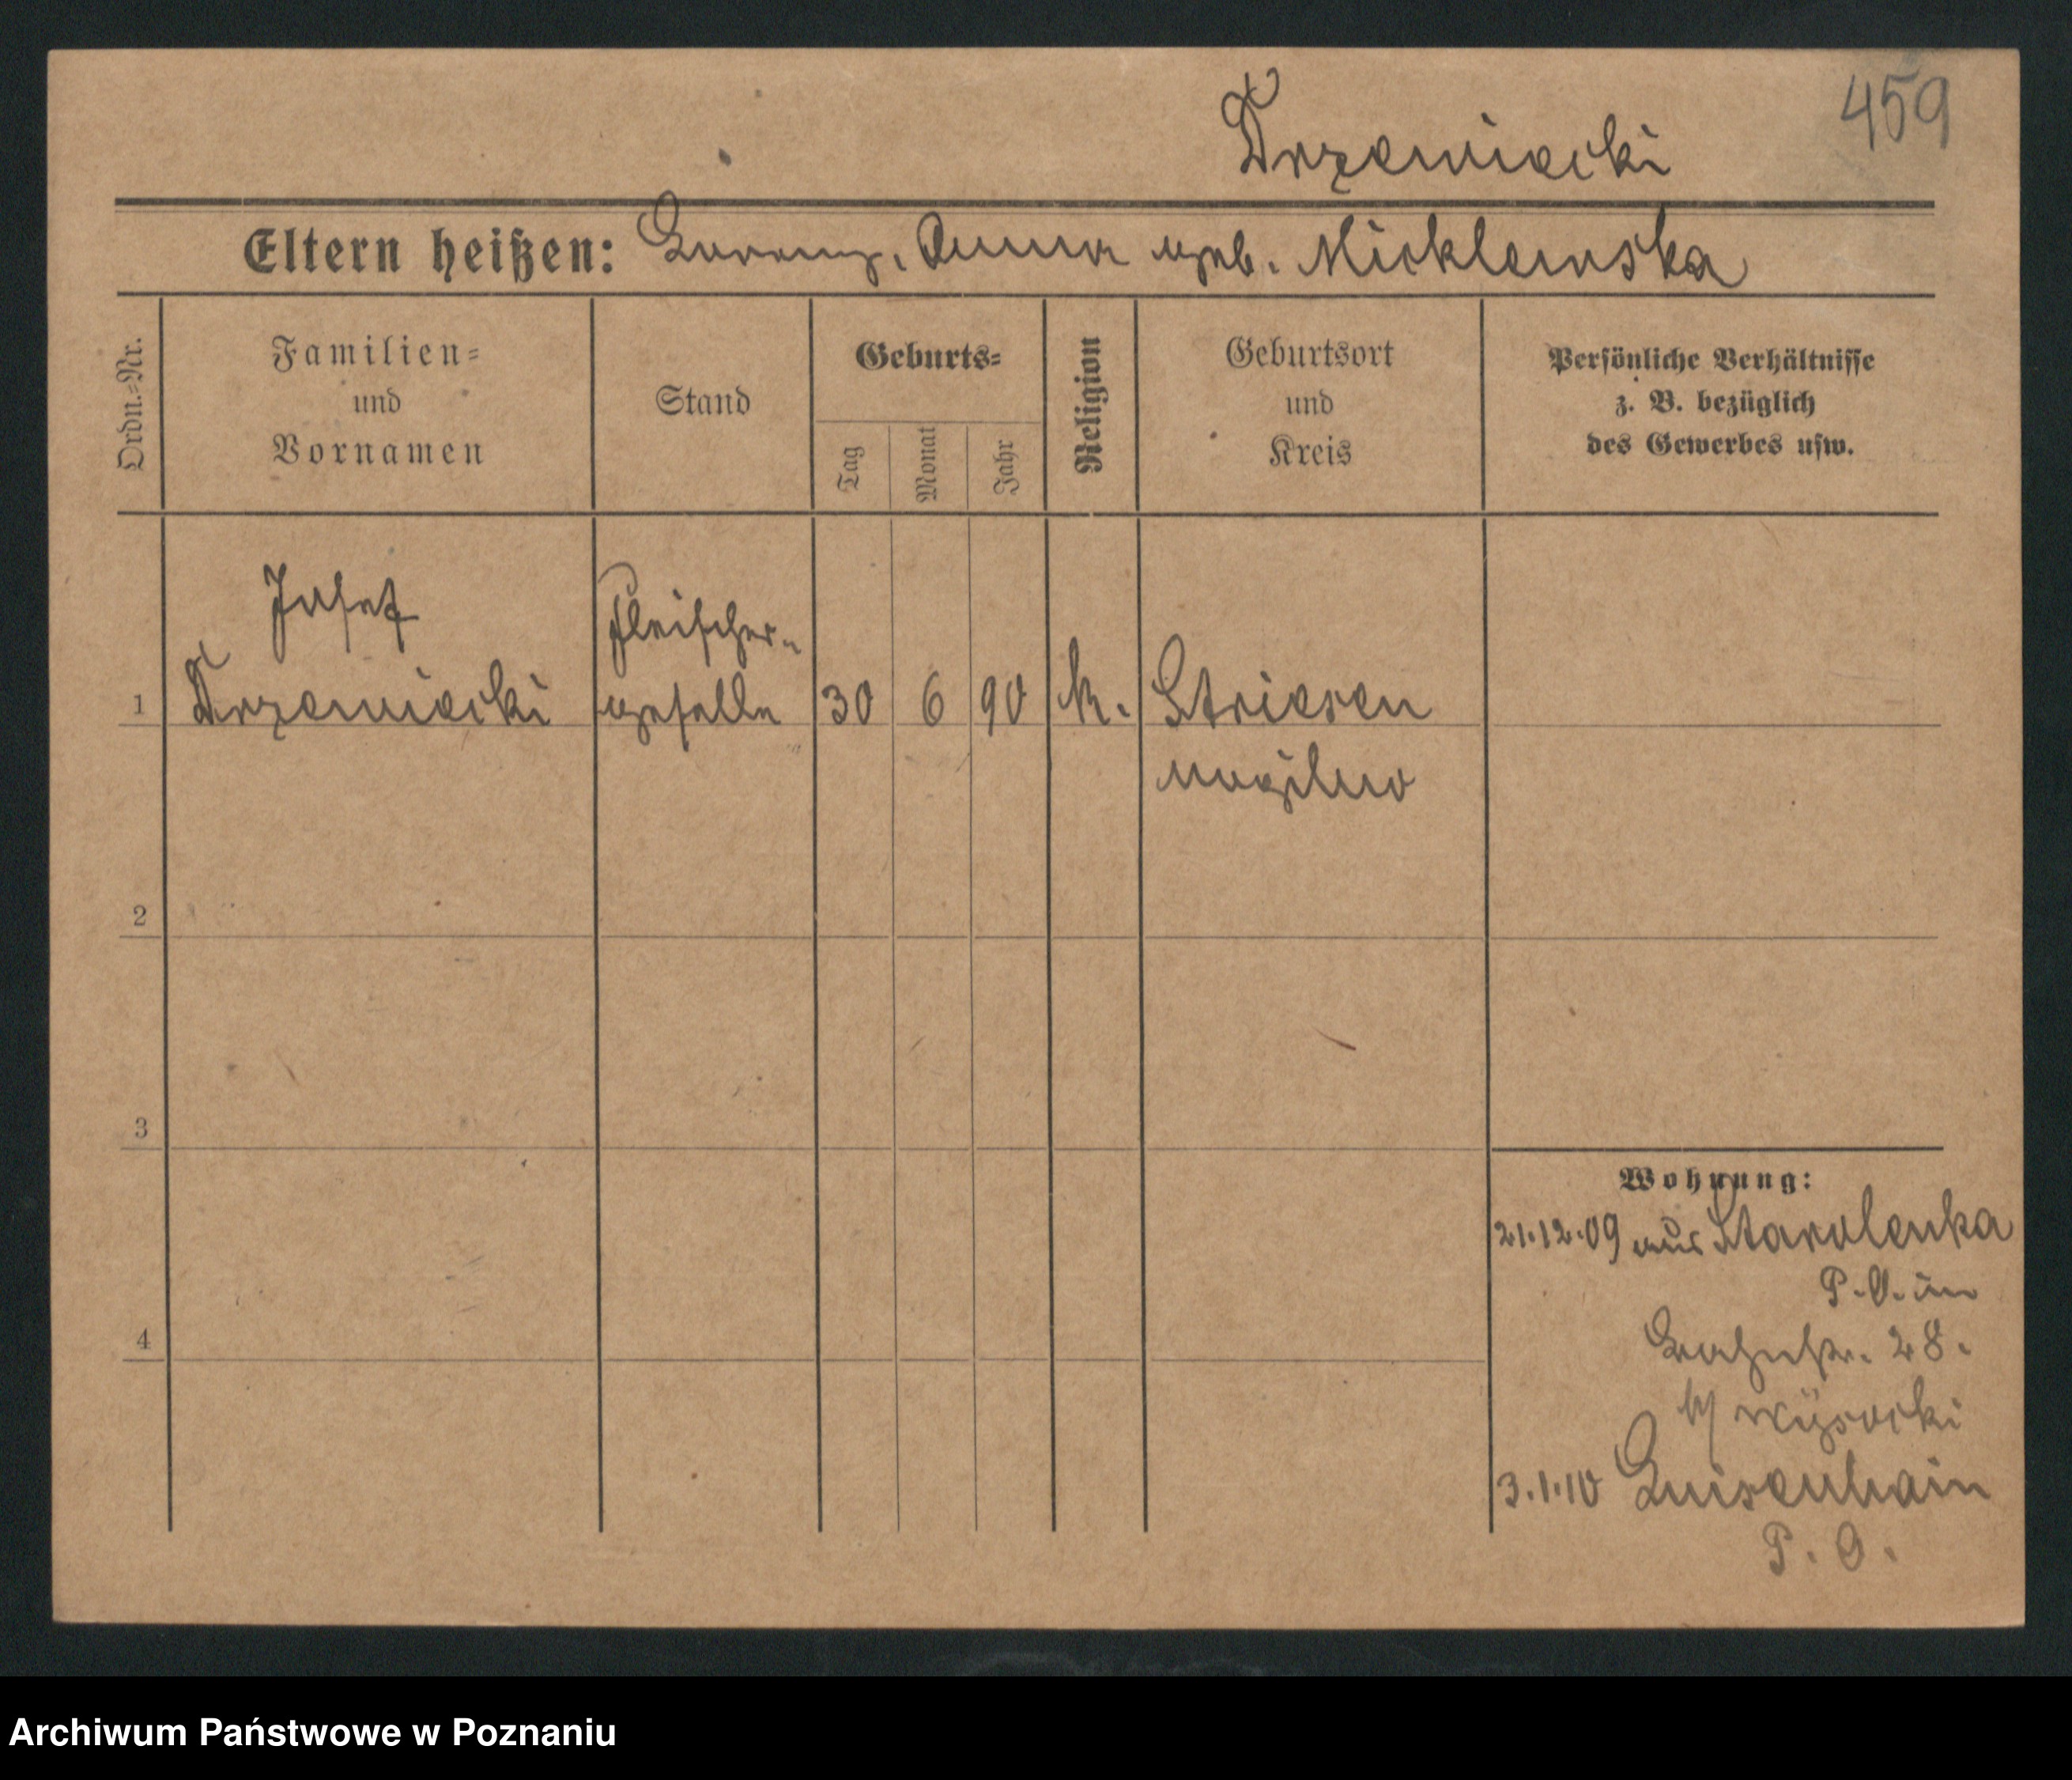 459
Drzewiecki
Eltern heißen: Lorenz, Anna geb. Micklewska
Ordn.-Nr.
Familien-
und
Vornamen
Stand
Geburts-
Tag
Monat
Jahr
Religion
Geburtsort
und
Kreis
Persönliche Verhältnisse
z. B. bezüglich
des Gewerbes usw.
Josef
Drzewiecki
Fleischer-
geselle
1
30 6 90
k.
Striesen
Mogilno
2
3
4
Wohnung:
21.12.09 aus Starolenka
P.O. in
Bahnstr. 28.
b/ Wÿsocki
3.1.10 Luisenhain
P. O.
Archiwum Państwowe w Poznaniu